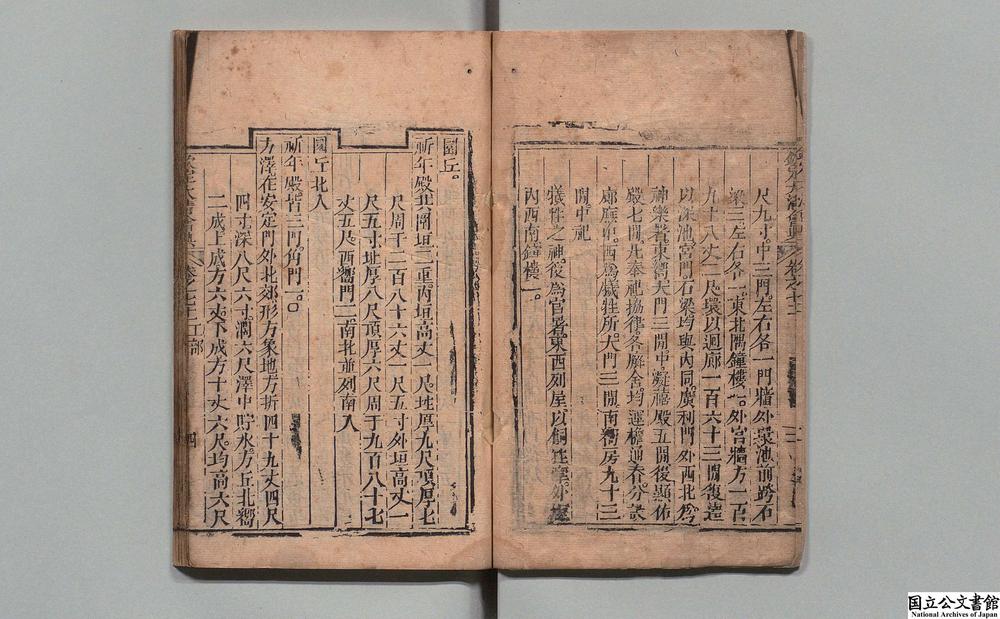 尺九寸。中三門。左右各一門。牆外深池。前跨石
梁三。左右各一。東北隅鐘樓一。外宮牆方一百
九十八丈二尺。環以迴廊一百六十三間。復遶
以深池。宮門石梁均與內同。廣利門外西北為
神樂署。東嚮。大門三間。中凝禧殿五間。後顯佑
殿七間。凡奉祀協律各廨舍。均連檐通脊。分設
廊廡
間。中祀
犧牲之神。後為官署。東西列屋。以飼牲牢。外垣
內西南鐘樓一。
圜丘。
祈年殿共圍垣二重。內垣高丈一尺。址厚九尺。頂厚七
尺。周千二百八十六丈一尺五寸。外垣高丈一
尺五寸。址厚八尺。頂厚六尺。周千九百八十七
丈五尺。西嚮門二。南北並列。南入
圜丘。北入
祈年殿。皆三門。角門一。○
方澤在安定門外北郊。形方象地。方折四十九丈四尺
四寸。深八尺六寸。濶六尺。澤中貯水。方丘北嚮
二成。上成方六丈。下成方十丈六尺。均高六尺
卷之七十二工部
四
国立公文書館
National Archives of Japan